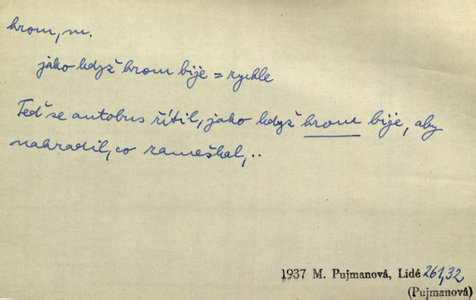 hrom, m.
jako když hrom bije = rychle
Teď se autobus řítil, jako když hrom bije, aby
nahradil, co zameškal, ..
1937 M. Pujmanová, Lidé 261,32
(Pujmanová)